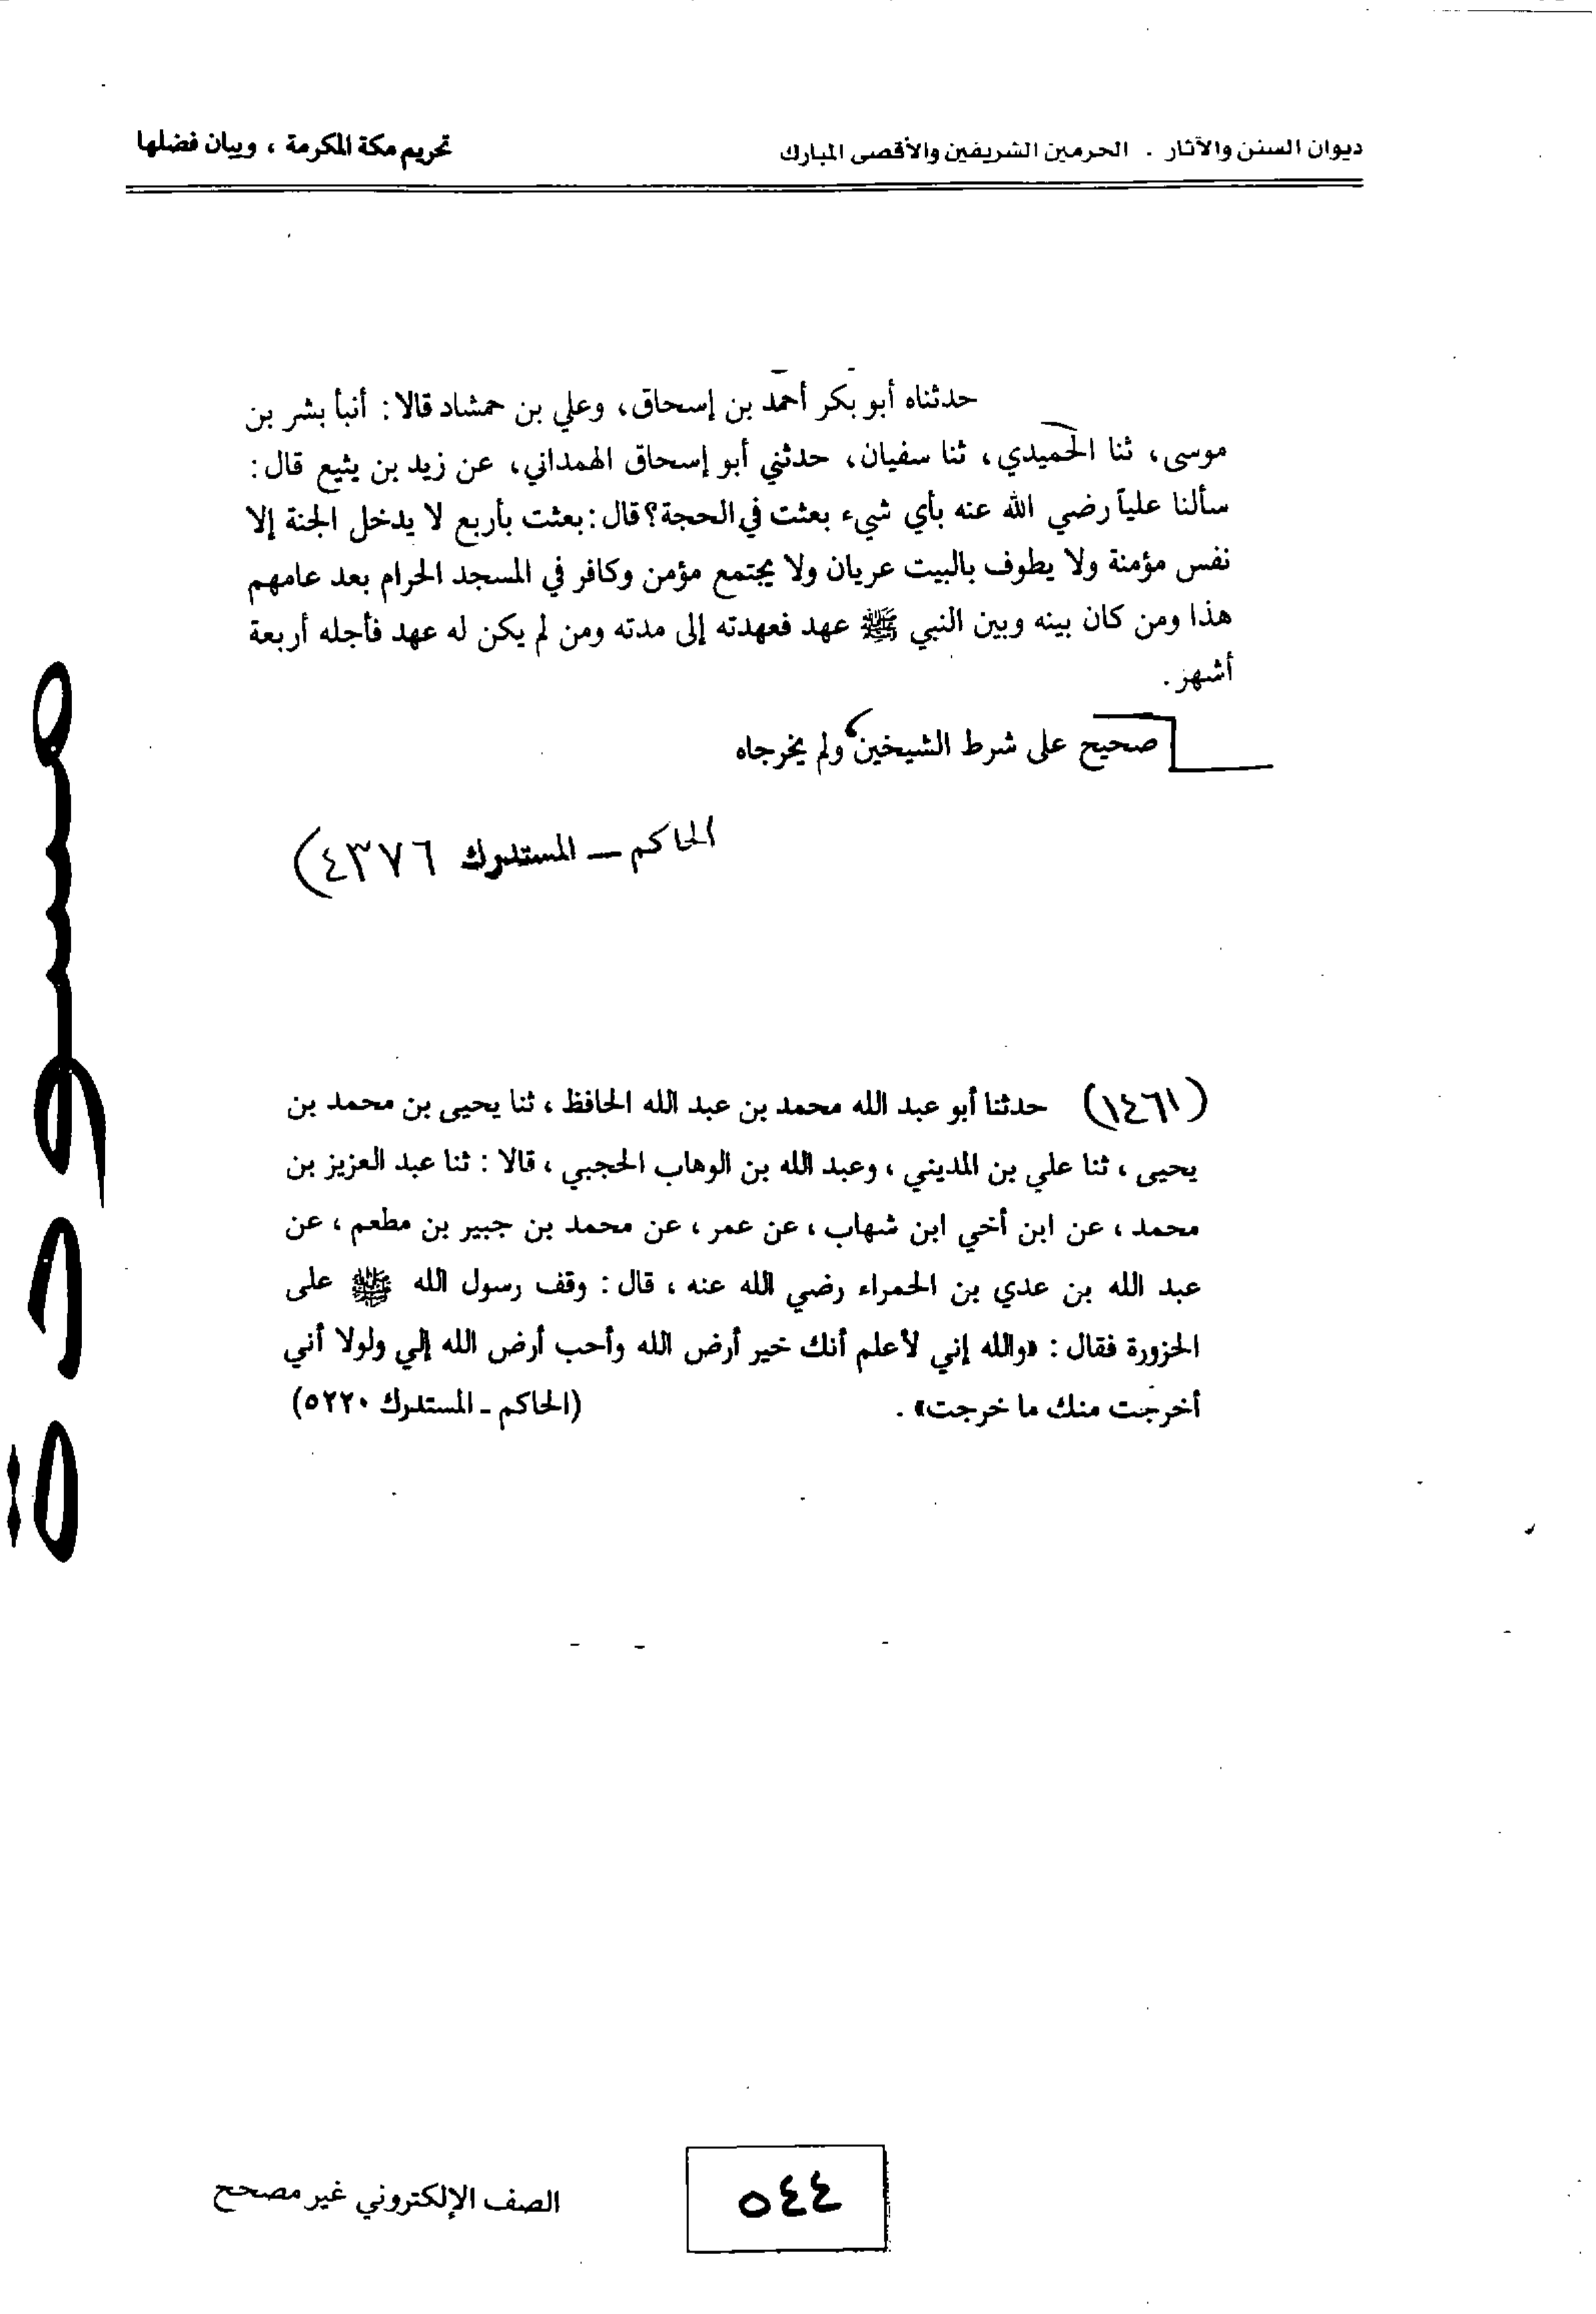 ديوان السنن والآثار . الحرمين الشريفين والأقصى المبارك
تحريم مكة المكرمة ، وبيان فضلها
حدثناه أبو بكر أحمد بن إسحاق، وعلي بن حمشاد قالا: أنبأ بشر بن
موسى، ثنا الحميدي، ثنا سفيان، حدثني أبو إسحاق الهمداني، عن زيد بن يثيع قال:
سألنا علياً رضي الله عنه بأي شيء بعثت في الحجة؟ قال: بعثت بأربع لا يدخل الجنة إلا
نفس مؤمنة ولا يطوف بالبيت عريان ولا يجتمع مؤمن وكافر في المسجد الحرام بعد عامهم
هذا ومن كان بينه وبين النبي ﷺ عهد فعهدته إلى مدته ومن لم يكن له عهد فأجله أربعة
أشهر.
صحيح على شرط الشيخين، ولم يخرجاه
الحاكم – المستدرك ٤٣٧٦)
(١٤٦١) حدثنا أبو عبد الله محمد بن عبد الله الحافظ ، ثنا يحيى بن محمد بن
يحيى ، ثنا علي بن المديني ، وعبد الله بن الوهاب الحجبي ، قالا : ثنا عبد العزيز بن
محمد ، عن ابن أخي ابن شهاب ، عن عمر ، عن محمد بن جبير بن مطعم ، عن
عبد الله بن عدي بن الحمراء رضي الله عنه ، قال : وقف رسول الله ﷺ على
الحزورة فقال : «والله إني لأعلم أنك خير أرض الله وأحب أرض الله إلي ولولا أني
أخرجت منك ما خرجت» . (الحاكم - المستدرك ٥٢٢٠)
مسودة
٥٤٤
الصف الإلكتروني غير مصحح